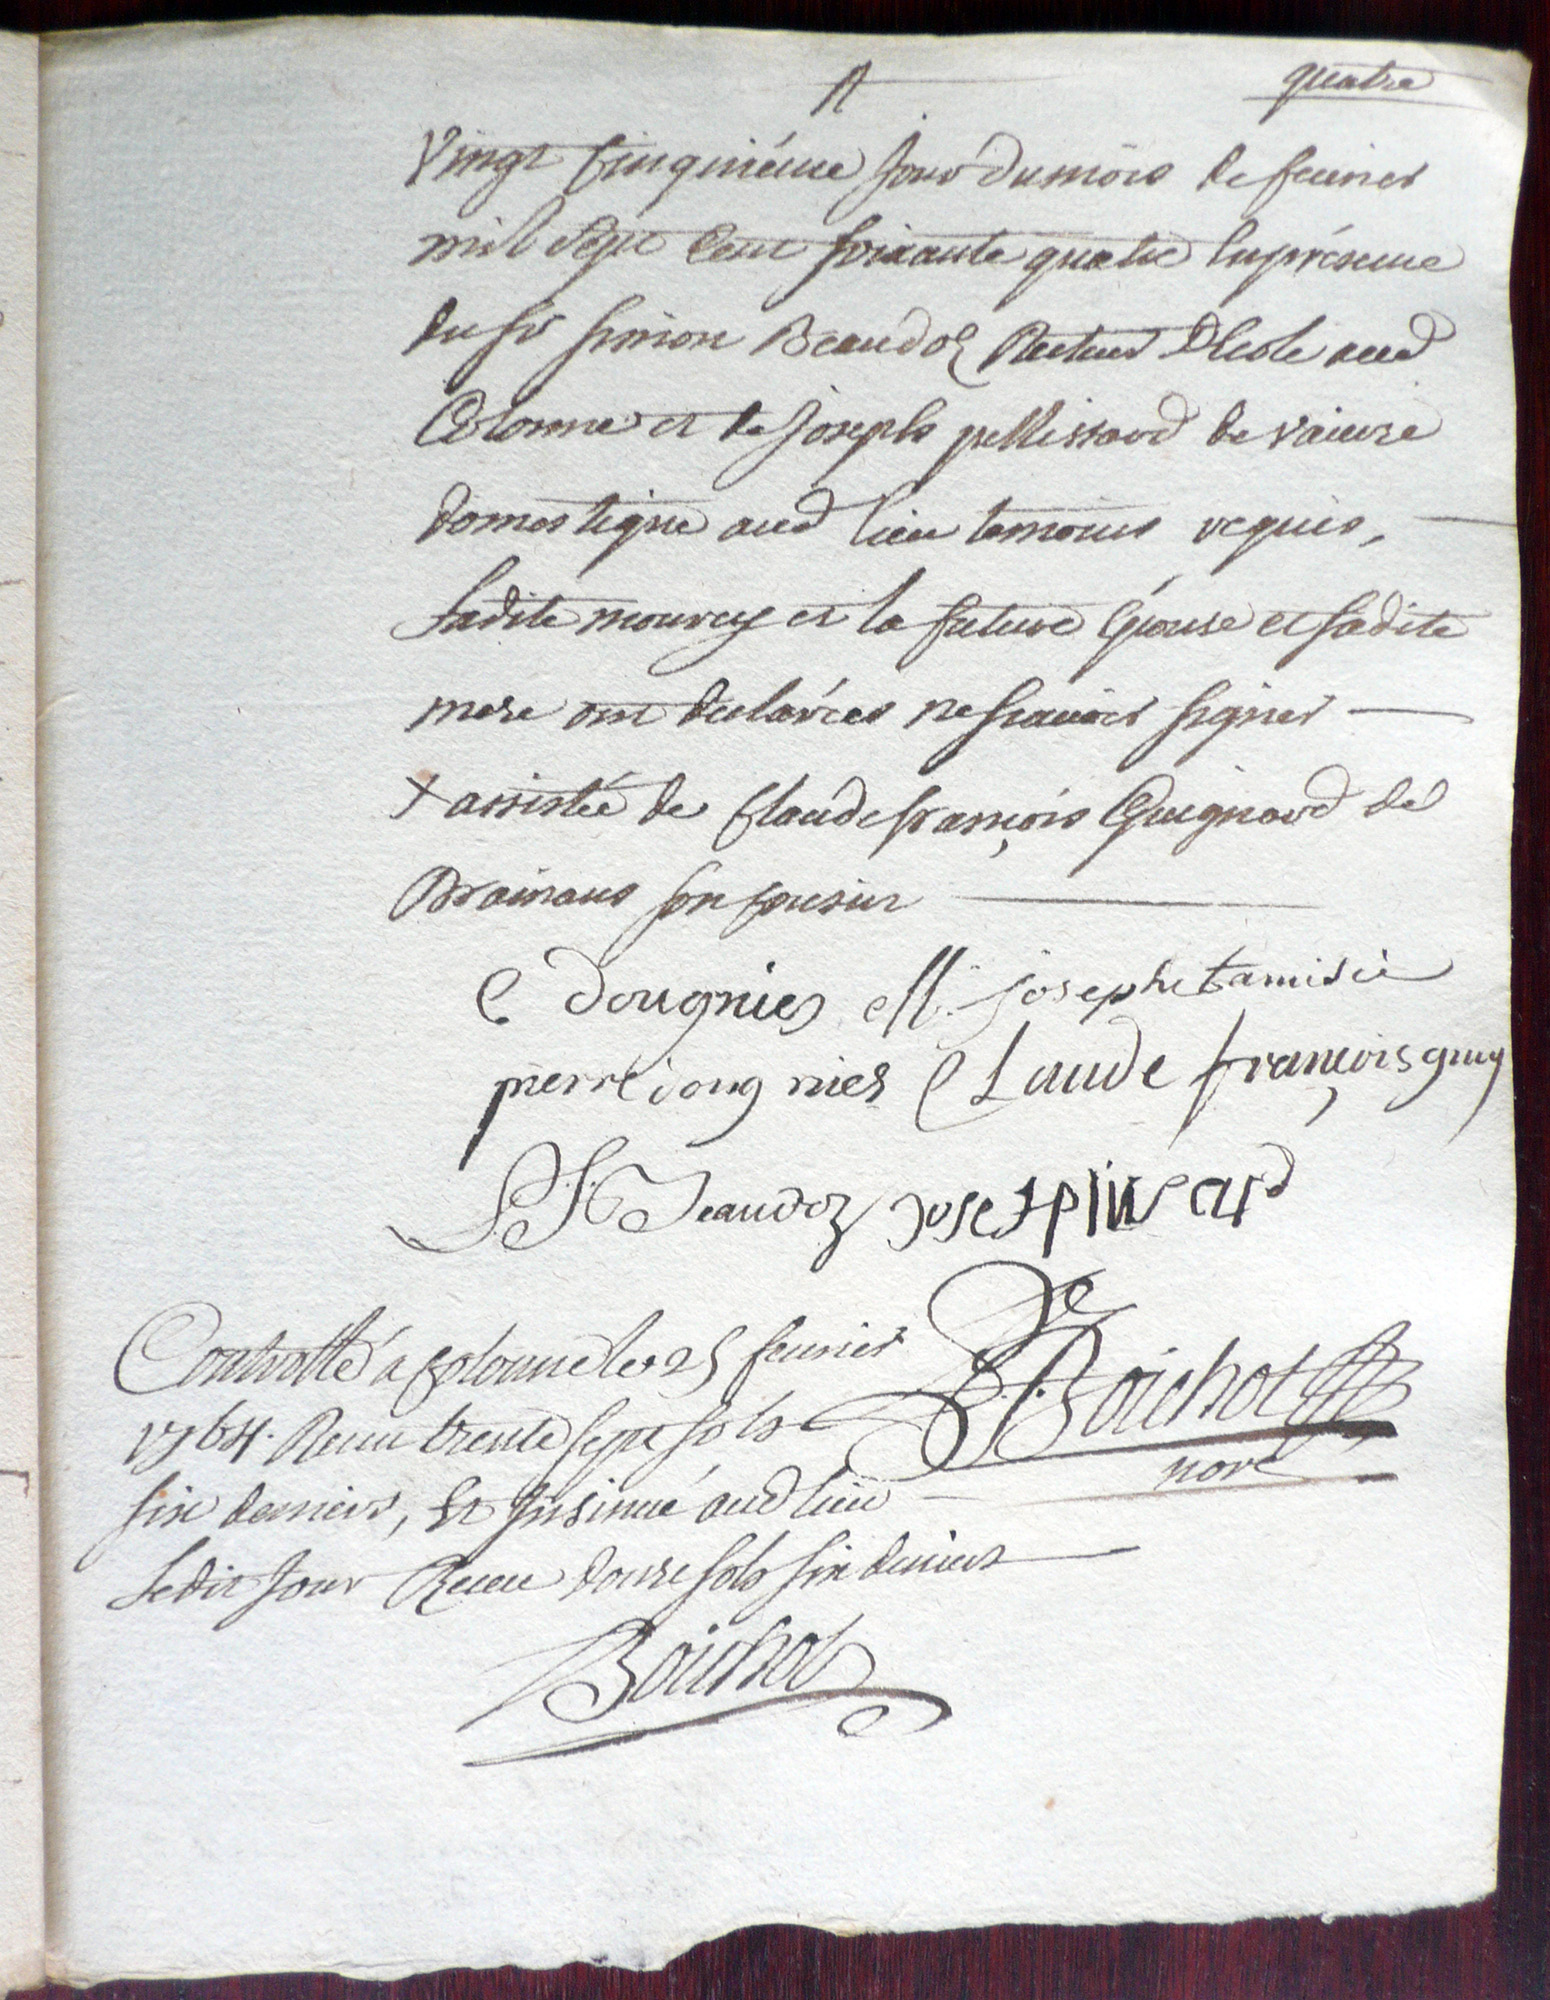 quatre
Vingt Cinquiéme Jour du mois de feurier
mil Sept Cent soixante quatre En présence
du sr simon Beaudoz Recteur d'Ecole aud
Colonne et de Joseph pellissard de vaivre
domestique aud lieu temoins requis,
ladite mourcy et la future Epouse et sadite
mere ont declarées ne scauoir signer
+ assistée de Claude françois Guignard de
Brainans son Cousin
C dougnies M. josephe tamisié
pierre dougnies Claude françois guy
S. Beaudoz Josef
Controllé á Colonne le 25 feurier
1764. Receu trente sept sols
six deniers, Et Insinué aud lieu
Ledit Jour Receu douze sols six deniers
Boichot
nore
Boichot